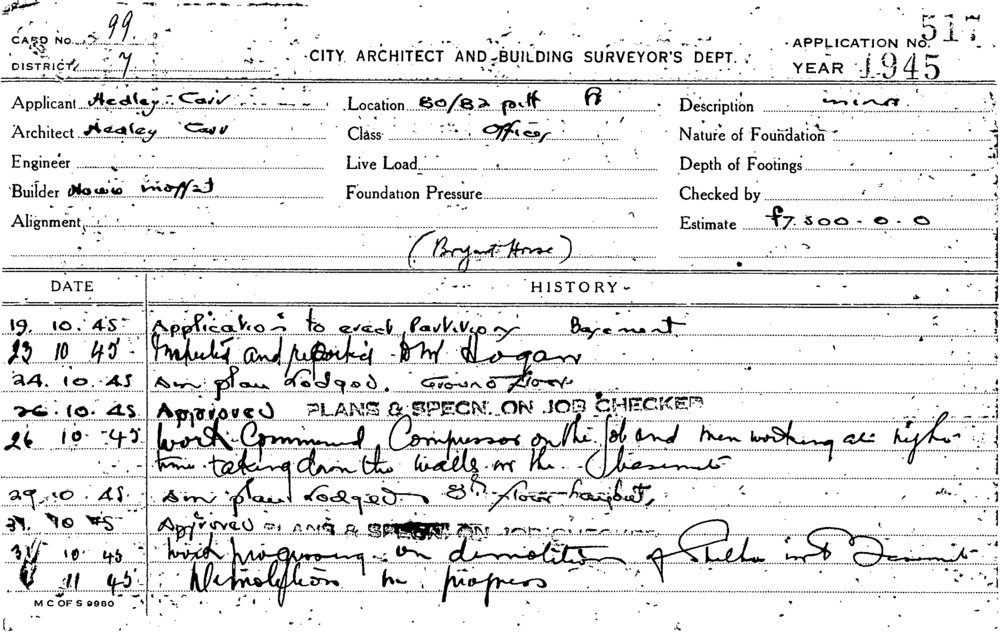 CARD No. 99
DISTRICT 7
CITY ARCHITECT AND BUILDING SURVEYOR'S DEPT.
APPLICATION No. 517
YEAR 1945
Applicant Hedley Carr
Location 80/82 pitt
Description minor
Architect Hedley Carr
Class Offices
Nature of Foundation
Engineer
Live Load
Depth of Footings
Builder Howie Moffat
Foundation Pressure
Checked by
Alignment
Estimate £7.500-0-0
(Bryant House)
DATE
HISTORY
19. 10. 45 Application to erect Partitions Basement
23 10 45 Inspected and reported Hogan
24. 10. 45 plan Lodged. Ground Floor
26. 10. 45 Approved PLANS & SPECN. ON JOB CHECKED
26 10 45 Work Commenced Compressor on the job and men working at night
time taking down the walls in the basement
29. 10. 45 plan Lodged 8th floor
31. 10 45 Approved PLANS & SPECN. ON JOB CHECKED
31 10 45 Work progressing on demolition of in Basement
11 45 Demolition in progress
M C OF S 9980